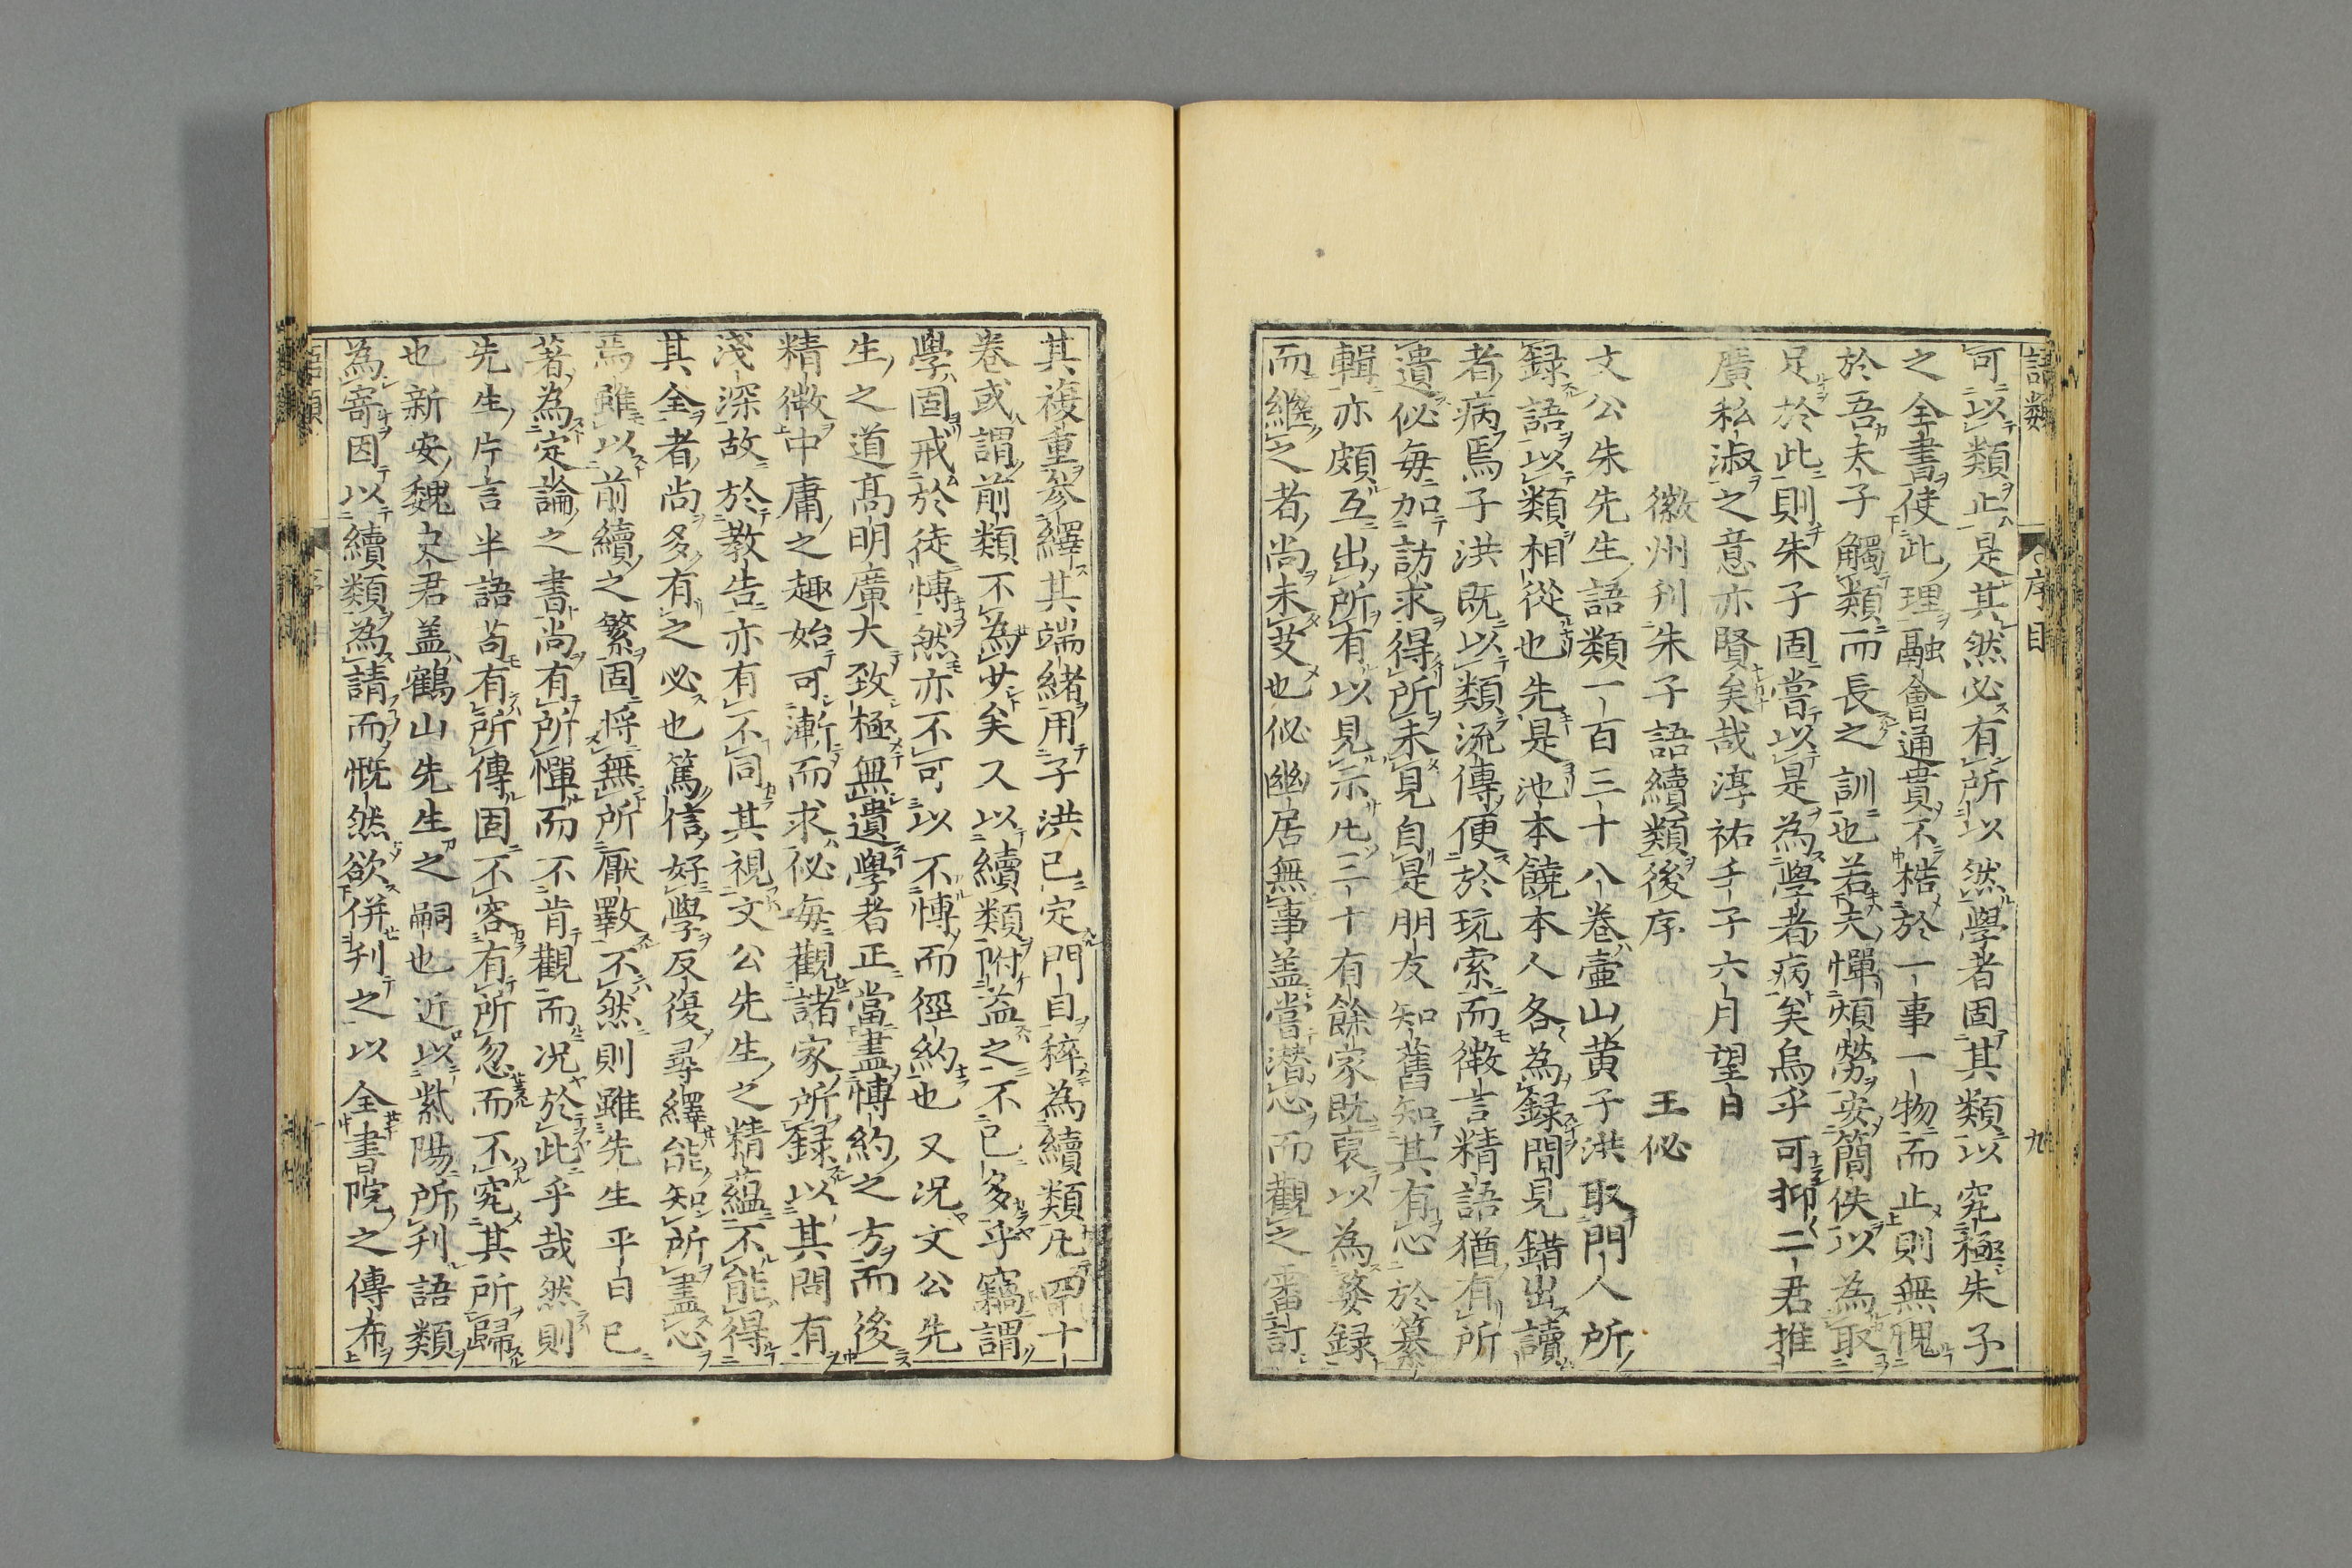 語類
序目
九
可以類止是其然必有所以然學者固其類以究極朱子
之全書使此理融會通貫不梏於一事一物而止則無愧
於吾夫子觸類而長之訓也若夫憚煩勞安簡佚以為取
足於此則朱子固當以是為學者病矣烏乎可抑二君推
廣私淑之意亦賢矣哉淳祐壬子六月望日
徽州刊朱子語續類後序
王佖
文公朱先生語類一百三十八卷壺山黃子洪取門人所
録語以類相從也先是池本饒本人各為録間見錯出讀
者病焉子洪既以類流傳便於玩索而徴言精語猶有所
遺佖每加訪求得所未見自是朋友知舊知其有心於纂
輯亦頗互出所有以見示凡三十有餘家既裒以為婺録
而繼之者尚未艾也佖幽居無事盖嘗潜心而觀之審訂
其複重參繹其端緒用子洪已定門目稡為續類凡四十
卷或謂前類不為少矣又以續類附益之不已多乎竊謂
學固戒於徒博然亦不可以不博而徑約也又况文公先
生之道高明廣大致極無遺學者正當盡博約之方而後
精微中庸之趣始可漸而求佖每觀諸家所録以其問有
淺深故於教告亦有不同其視文公先生之精蘊不能得
其全者尚多有之必也篤信好學反復尋繹能知所盡心
焉雖以前續之繁固將無所厭斁不然則雖先生平日已
著為定論之書尚有所憚而不肯觀而况於此乎哉然則
先生片言半語苟有所傳固不容有所忽而不究其所歸
也新安魏史君盖鶴山先生之嗣也近以紫陽所刊語類
為寄因以續類為請而慨然欲併刊之以全書院之傳布